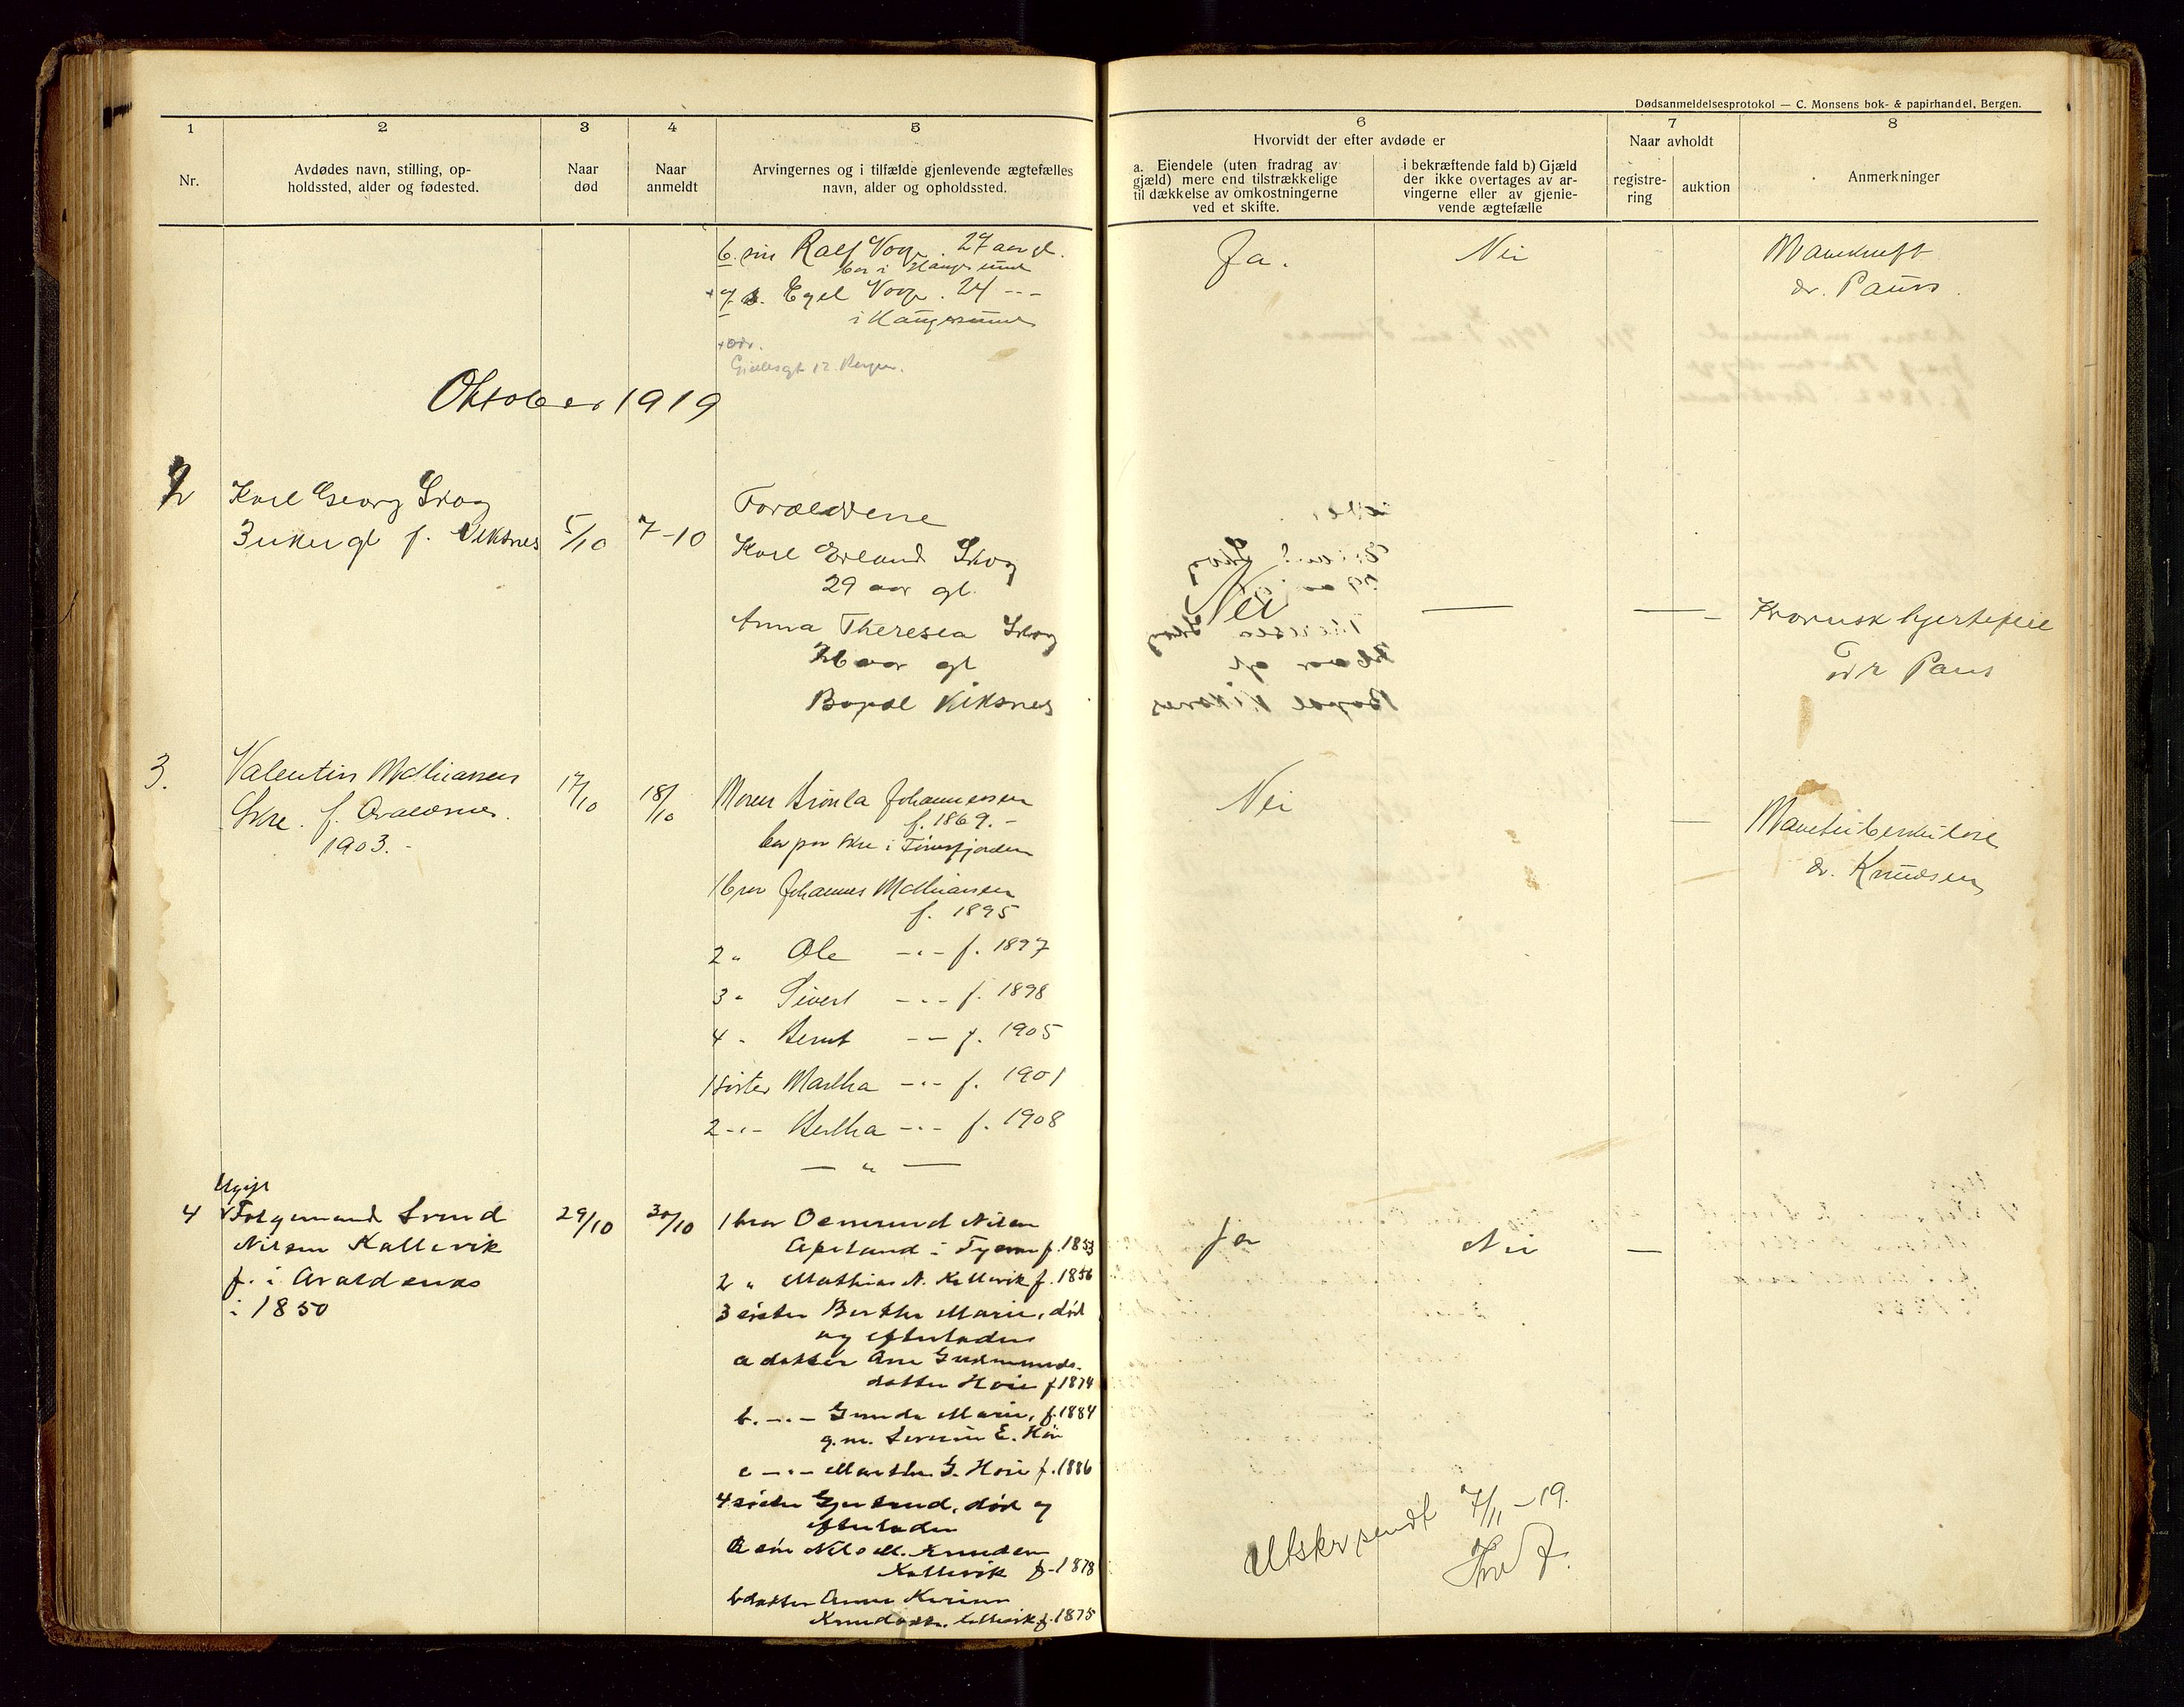 Dødsanmeldelsesprotokol — C. Monsens bok- & papirhandel, Bergen.
1 2 3 4 5 6 7 8
Nr.
Avdødes navn, stilling, op-
holdssted, alder og fødested.
Naar
død
Naar
anmeldt
Arvingernes og i tilfælde gjenlevende ægtefælles
navn, alder og opholdssted.
Hvorvidt der efter avdøde er
a. Eiendele (uten fradrag av
gjæld) mere end tilstrækkelige
til dækkelse av omkostningerne
ved et skifte.
i bekræftende fald b) Gjæld
der ikke overtages av ar-
vingerne eller av gjenle-
vende ægtefælle
Naar avholdt
registre-
ring
auktion
Anmerkninger
6. søn Ralf 27 aar gl.
bor i Haugesund
7 s. Egel 24 - - -
i Haugesund
Ja.
Nei
Mavekræft
dr. Paus.
Oktober 1919
2
Karl Georg Skog
3 uker gl f. Viksnes
5/10
7-10
Forældrene
Karl Erland Skog
29 aar gl.
Anna Theresea Skog
26 aar gl
Bopæl Viksnes
Nei
— — -
Kronisk hjertefeil
dr Paus
3.
Valentin Mathiassen
Skre. f. Avaldsnes.
1903.-
17/10
18/10
Moren Johannessen
f. 1869.-
bor paa Skre i Førresfjorden
1 bror Johannes Mathiassen
f. 1895
2 " Ole -"- f. 1897
3 " Sivert -"- f. 1898
4 " Bernt -"- f. 1905
1 søster Martha -"- f. 1901
2 -"- Bertha -"- f. 1908
— " —
Nei
—
Mavetuberkulose
dr. Knudsen
4
Ugift
Følgemand Svend
Nilsen Kallevik
f. i Avaldsnes
i 1850
29/10
30/10
1 bror Osmund Nilsen
Apeland i Tysvær f. 1853
2 " Mathias N. Kallevik f. 1856
3 søster Berthe Marie, død
og efterlader
a datter Ane Gudmunds-
datter Hoie f 1874
b. -"- Gunda Marie, f. 1884
g.m. Severin E.
c -"- Marthe G. Hoie f. 1886
4 søster Gjertrud, død og
efterlader
a søn Nils M. Knudsen
Kallevik f. 1878
b datter Anne Karine
Knudsdtr. Kallevik f. 1875
Ja
Nei
—
Utskr sendt 7/11-19.